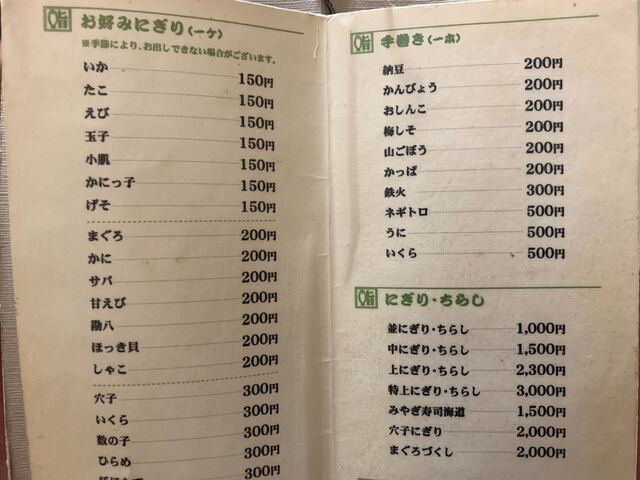 鮨 お好みにぎり(一ケ)
※季節により、お出しできない場合がございます。
いか 150円
たこ 150円
えび 150円
玉子 150円
小肌 150円
かにっ子 150円
げそ 150円
まぐろ 200円
かに 200円
サバ 200円
甘えび 200円
勘八 200円
ほっき貝 200円
しゃこ 200円
穴子 300円
いくら 300円
数の子 300円
ひらめ 300円
300円
鮨 手巻き(一本)
納豆 200円
かんぴょう 200円
おしんこ 200円
梅しそ 200円
山ごぼう 200円
かっぱ 200円
鉄火 300円
ネギトロ 500円
うに 500円
いくら 500円
鮨 にぎり・ちらし
並にぎり・ちらし 1,000円
中にぎり・ちらし 1,500円
上にぎり・ちらし 2,300円
特上にぎり・ちらし 3,000円
みやぎ寿司海道 1,500円
穴子にぎり 2,000円
まぐろづくし 2,000円